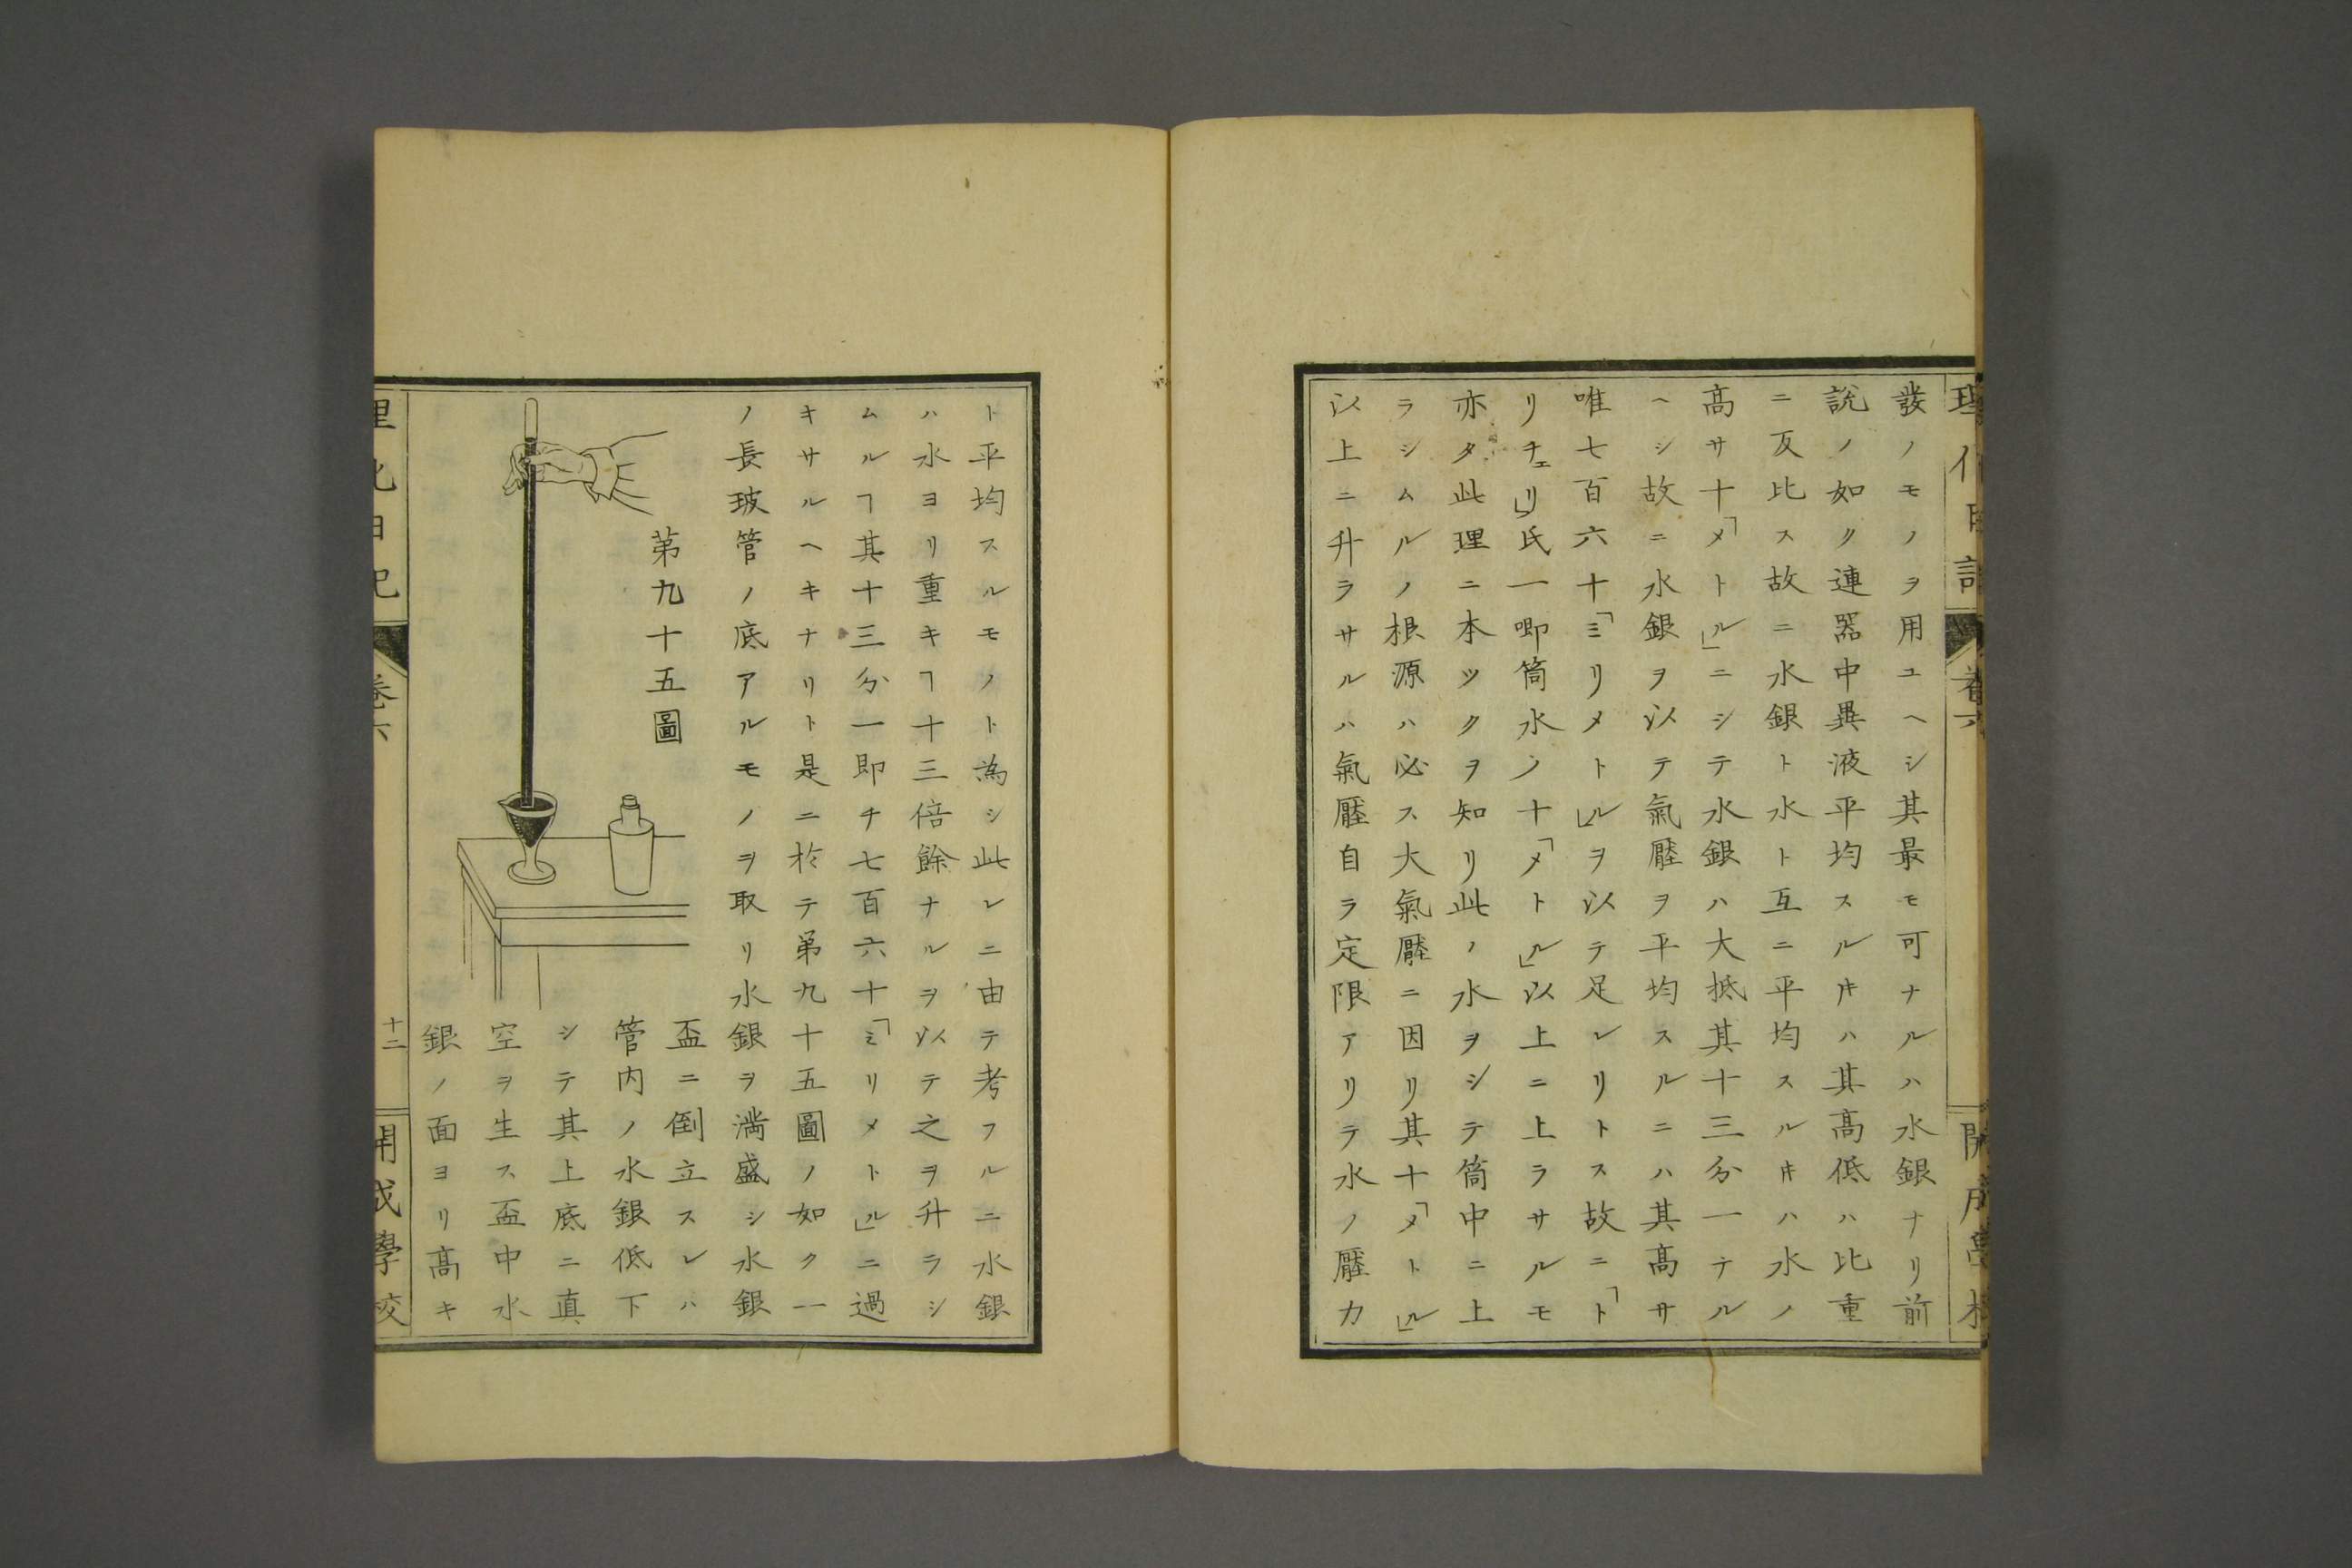 發ノモノヲ用ユヘシ其最モ可ナルハ水銀ナリ前
説ノ如ク連器中異液平均スルキハ其高低ハ比重
ニ反比ス故ニ水銀ト水ト互ニ平均スルキハ水ノ
高サ十「メトル」ニシテ水銀ハ大抵其十三分一テル
ヘシ故ニ水銀ヲ以テ氣壓ヲ平均スルニハ其高サ
唯七百六十「ミリメトル」ヲ以テ足レリトス故ニ「ト
リチェリ」氏一喞筒水ノ十「メトル」以上ニ上ラサルモ
亦タ此理ニ本ツクヲ知リ此ノ水ヲシテ筒中ニ上
ラシムルノ根源ハ必ス大氣壓ニ因リ其十「メトル」
以上ニ升ラサルハ氣壓自ラ定限アリテ水ノ壓力
卷六
ト平均スルモノト為シ此レニ由テ考フルニ水銀
ハ水ヨリ重キヿ十三倍餘ナルヲ以テ之ヲ升ラシ
ムルヿ其十三分一即チ七百六十「ミリメトル」ニ過
キサルヘキナリト是ニ於テ第九十五圖ノ如ク一
ノ長玻管ノ底アルモノヲ取リ水銀ヲ満盛シ水銀
第九十五圖
盃ニ倒立スレハ
管内ノ水銀低下
シテ其上底ニ真
空ヲ生ス盃中水
銀ノ面ヨリ高キ
理化日記
卷六
十二
開成學校